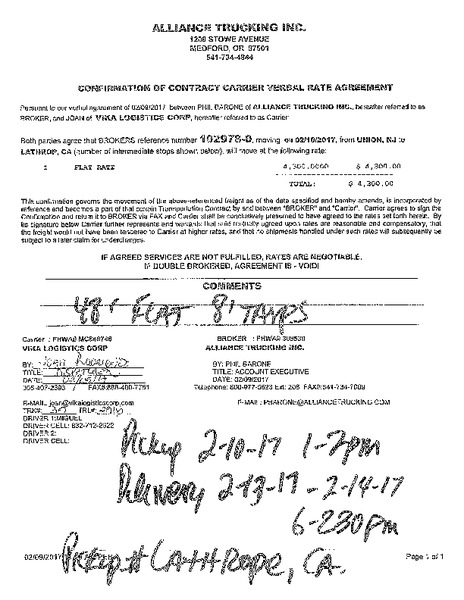 ALLIANCE TRUCKING INC.
1206 STOWE AVENUE
MEDFORD, OR 97501
541-734-4844
CONFIRMATION OF CONTRACT CARRIER VERBAL RATE AGREEMENT
Pursuant to our verbal agreement of 02/09/2017 between PHIL BARONE of ALLIANCE TRUCKING INC., hereafter referred to as
BROKER, and JOAN of VIKA LOGISTICS CORP, hereafter referred to as Carrier
Both parties agree that BROKERS reference number 102978-0, moving on 02/10/2017, from UNION, NJ to
LATHROP, CA (number of intermediate stops shown below), will move at the following rate:
1 FLAT RATE 4,300.0000 $ 4,300.00
TOTAL: $ 4,300.00
This confirmation governs the movement of the above-referenced freight as of the date specified and hereby amends, is incorporated by
reference and becomes a part of that certain Transportation Contract by and between "BROKER" and "Carrier". Carrier agrees to sign the
Confirmation and return it to BROKER via FAX and Carrier shall be conclusively presumed to have agreed to the rates set forth herein. By
its signature below Carrier further represents and warrants that said mutually agreed upon rates are reasonable and compensatory, that
the freight would not have been tendered to Carrier at higher rates, and that no shipments handled under such rates will subsequently be
subject to a later claim for undercharges.
IF AGREED SERVICES ARE NOT FULFILLED, RATES ARE NEGOTIABLE.
IF DOUBLE BROKERED, AGREEMENT IS - VOID!
COMMENTS
48' FLAT 8' TARPS
Carrier : FHWA# MC
BROKER : FHWA#
VIKA LOGISTICS CORP
ALLIANCE TRUCKING INC.
BY: Joan
BY: PHIL BARONE
TITLE: Dispatcher
TITLE: ACCOUNT EXECUTIVE
DATE:
DATE: 02/09/2017
FAX:
Telephone: Ext: 208 FAX#:541-734-7009
E-MAIL: joan@vikalogisticscorp.com
E-MAIL: PBARONE@ALLIANCETRUCKING.COM
TRK#: TRL#:
DRIVER 1:MIGUEL
DRIVER CELL: 832-712-2622
DRIVER 2:
DRIVER CELL:
Pickup 2-10-17 1-2pm
Delivery 2-13-17 - 2-14-17
6-230pm
Pickup # Cathrope, CA.
02/09/2017
Page 1 of 1